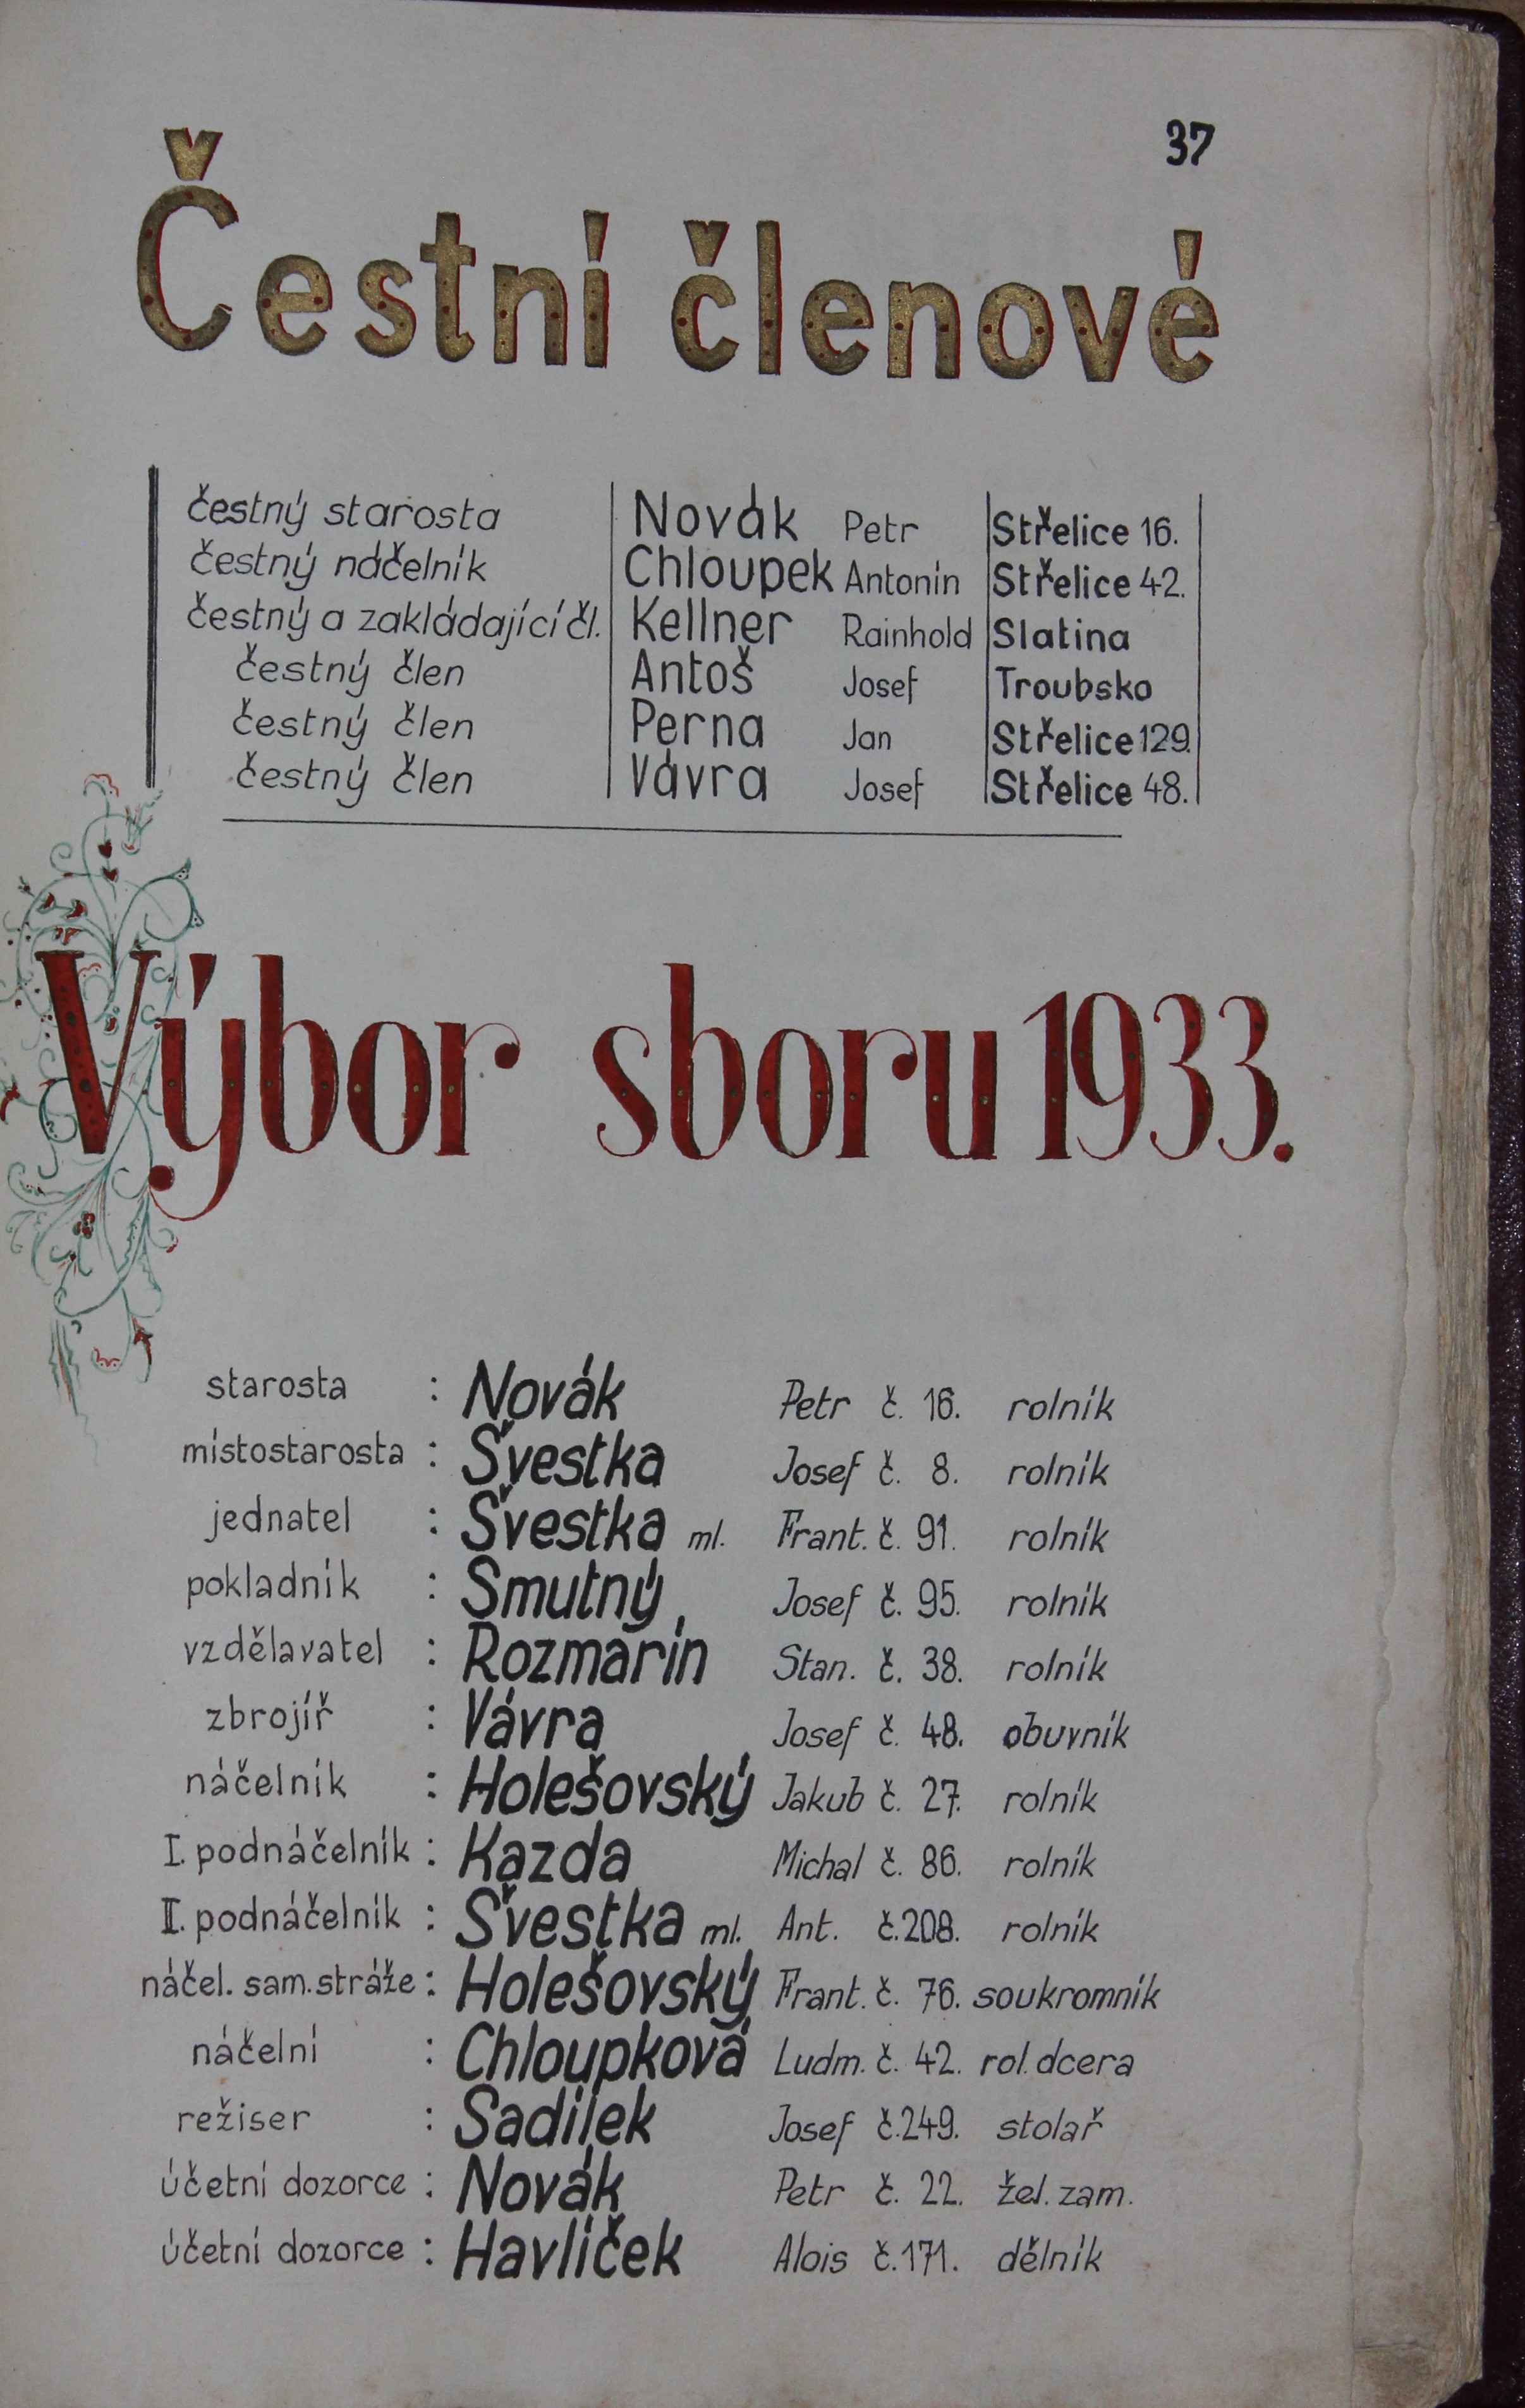 37
Čestní členové
čestný starosta Novák Petr Střelice 16.
čestný náčelník Chloupek Antonín Střelice 42.
čestný a zakládající čl. Kellner Rainhold Slatina
čestný člen Antoš Josef Troubsko
čestný člen Perna Jan Střelice 129.
čestný člen Vávra Josef Střelice 48.
Výbor sboru 1933.
starosta : Novák Petr č. 16. rolník
místostarosta : Švestka Josef č. 8. rolník
jednatel : Švestka ml. Frant. č. 91. rolník
pokladník : Smutný Josef č. 95. rolník
vzdělavatel : Rozmarín Stan. č. 38. rolník
zbrojíř : Vávra Josef č. 48. obuvník
náčelník : Holešovský Jakub č. 27. rolník
I. podnáčelník : Kazda Michal č. 86. rolník
II. podnáčelník : Švestka ml. Ant. č. 208. rolník
náčel. sam. stráže : Holešovský Frant. č. 76. soukromník
náčelní : Chloupková Ludm. č. 42. rol. dcera
režiser : Sadílek Josef č. 249. stolař
účetní dozorce : Novák Petr č. 22. žel. zam.
účetní dozorce : Havlíček Alois č. 171. dělník